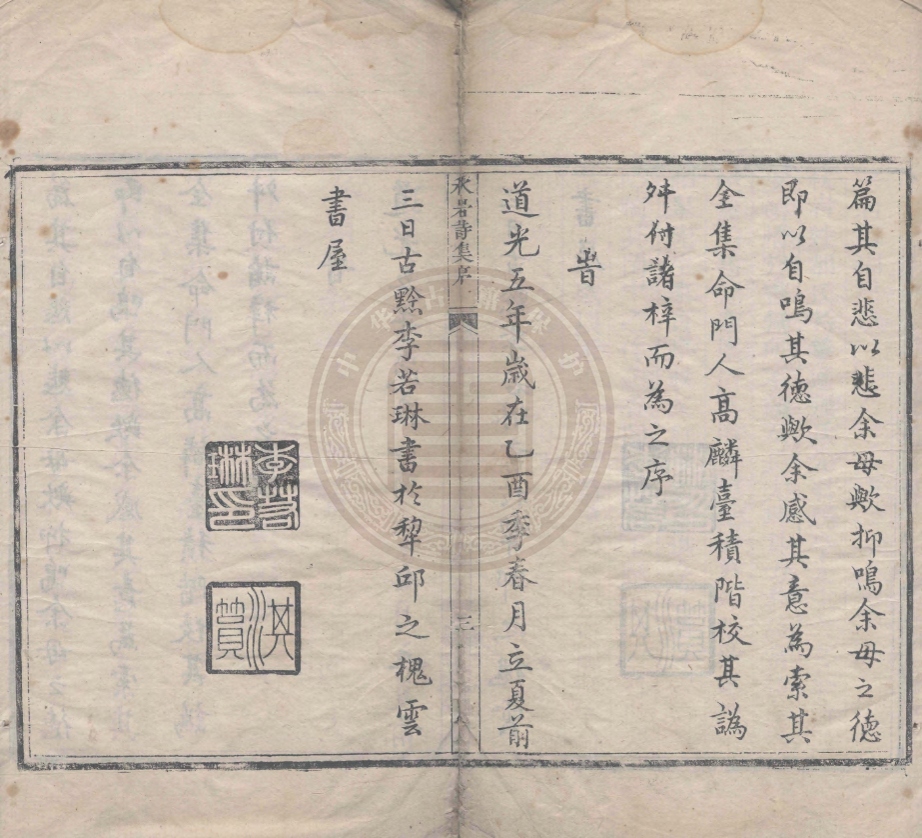 篇其自悲以悲余母歟抑鳴余母之德
即以自鳴其德歟余感其意為索其
全集命門人高麟臺積階校其譌
舛付諸梓而為之序
旹
道光五年歲在乙酉季春月立夏前
秋岩詩集序
三
三日古黟李若琳書於犂邱之槐雲
書屋
李若琳印
淇篔